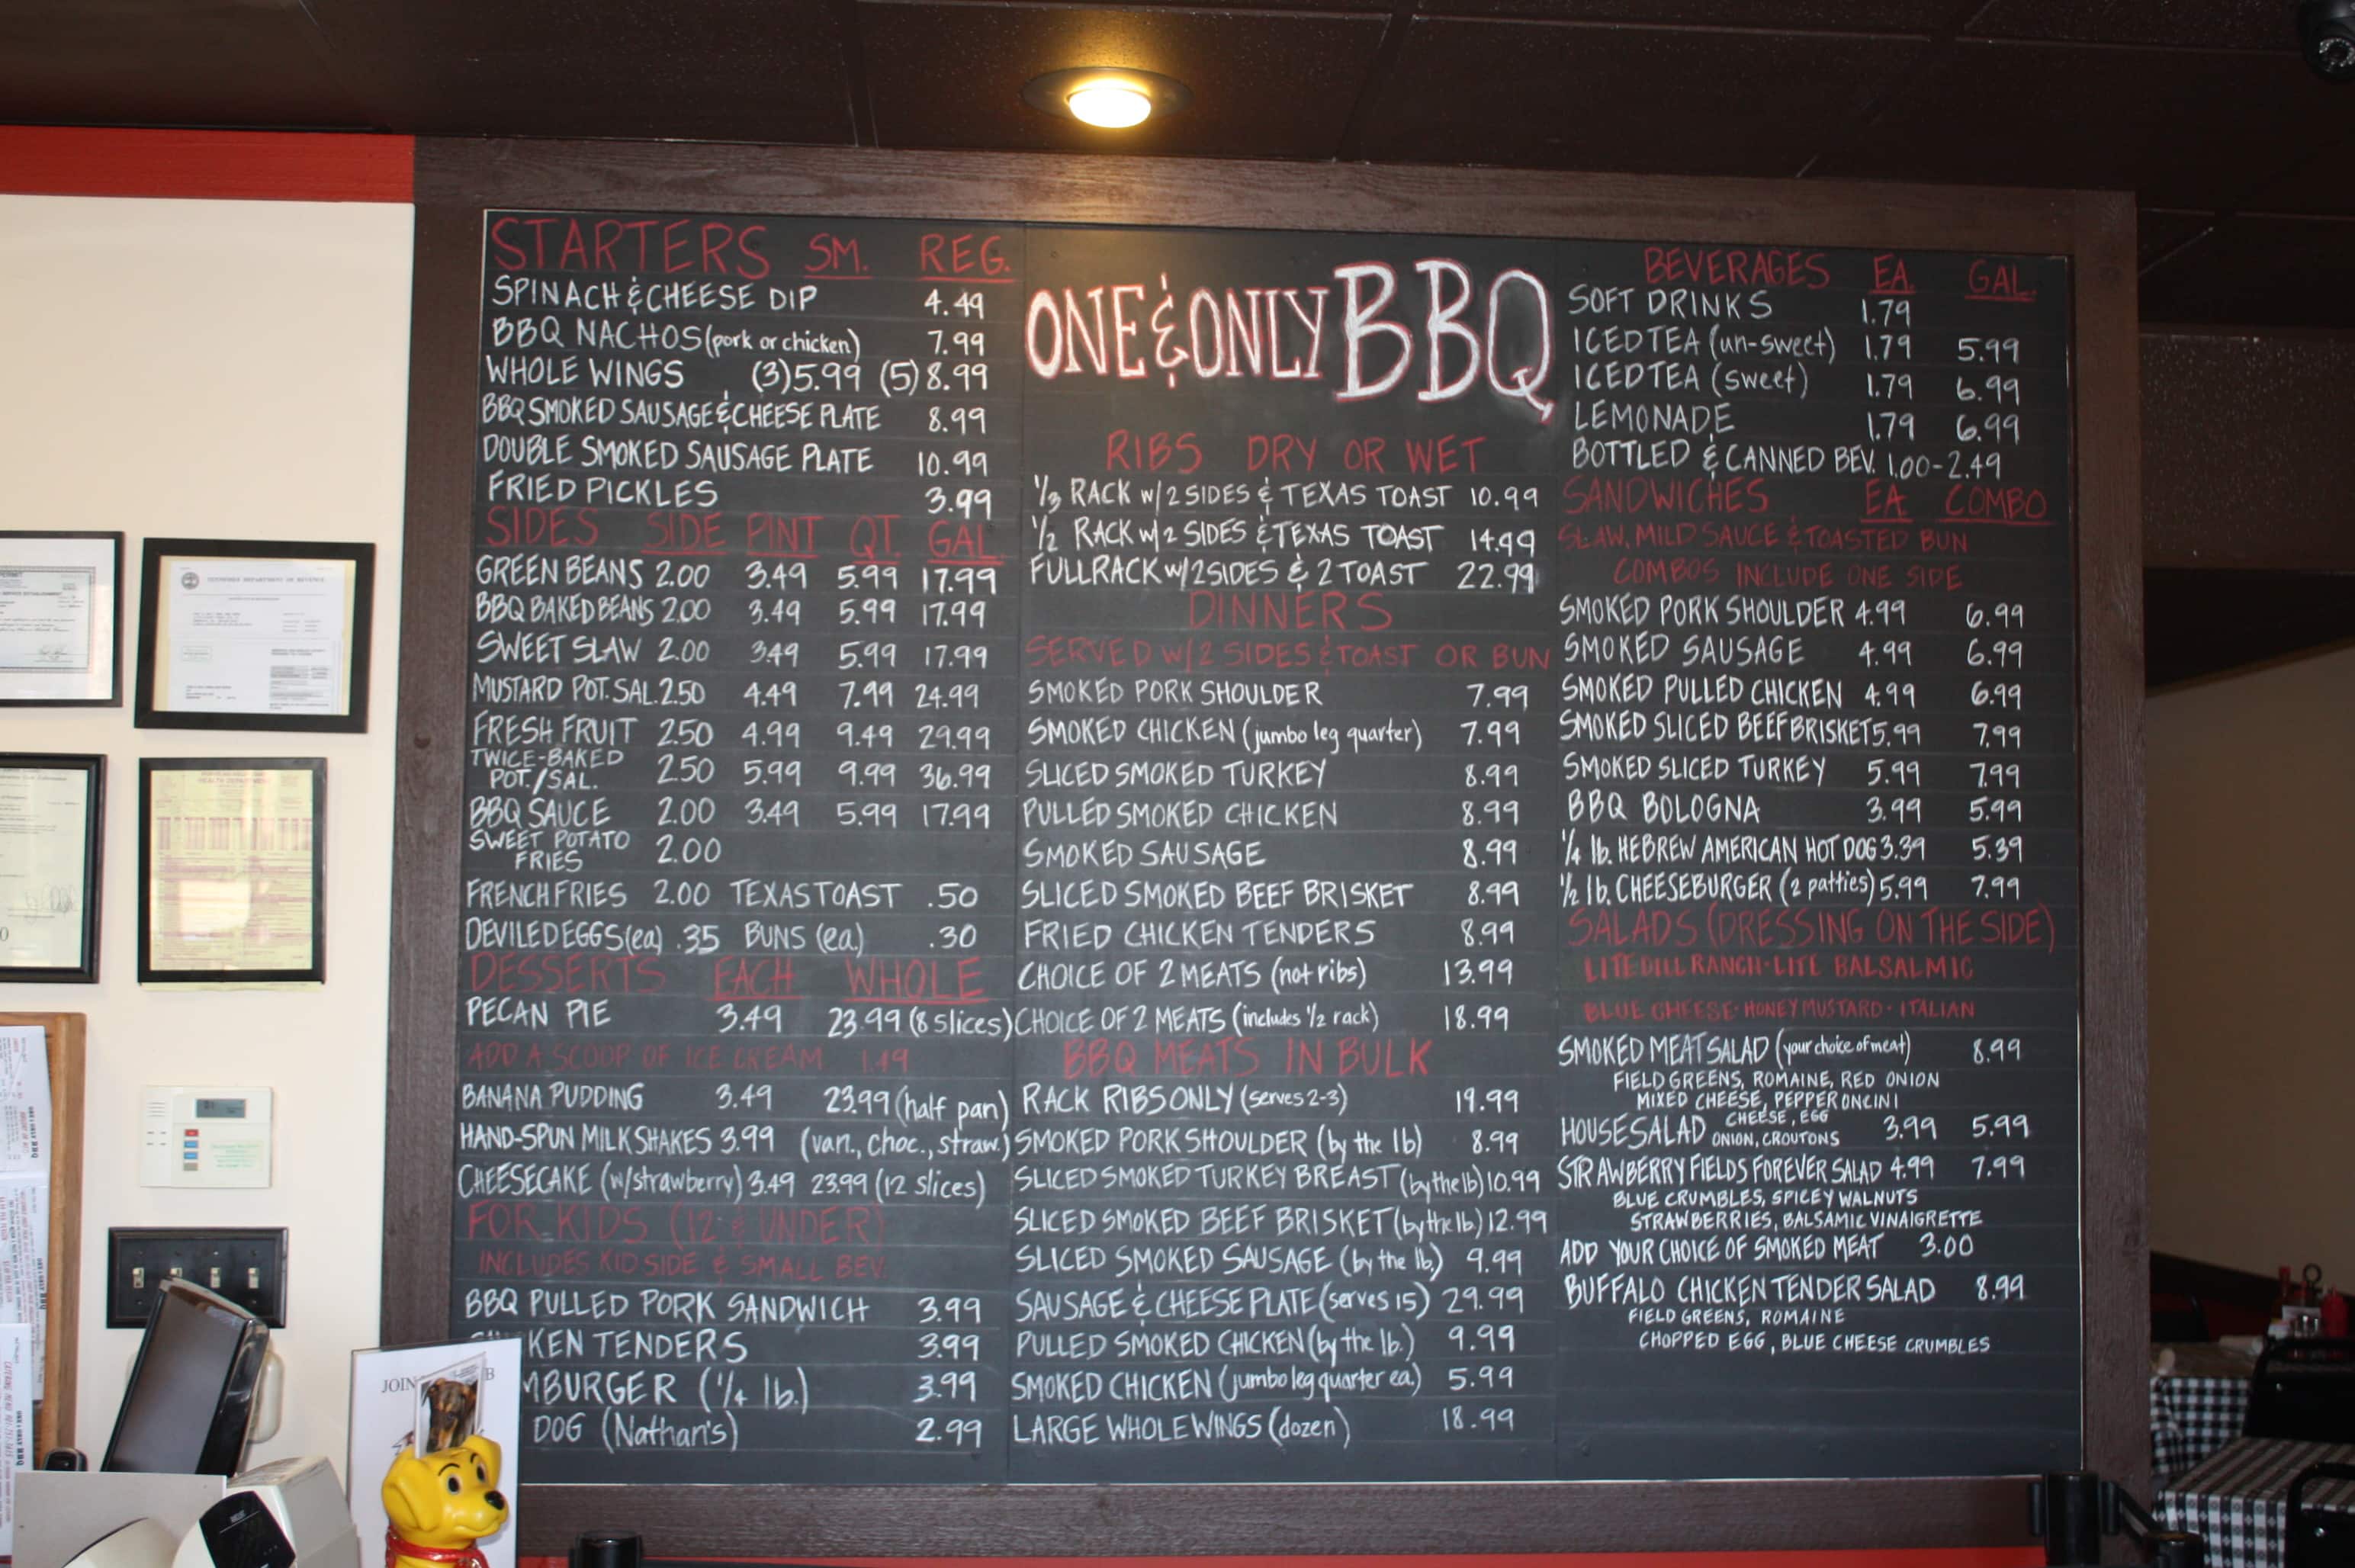 STARTERS SM. REG.
SPINACH & CHEESE DIP 4.49
BBQ NACHOS (pork or chicken) 7.99
WHOLE WINGS (3) 5.99 (5) 8.99
BBQ SMOKED SAUSAGE & CHEESE PLATE 8.99
DOUBLE SMOKED SAUSAGE PLATE 10.99
FRIED PICKLES 3.99
SIDES SIDE PINT QT. GAL.
GREEN BEANS 2.00 3.49 5.99 17.99
BBQ BAKED BEANS 2.00 3.49 5.99 17.99
SWEET SLAW 2.00 3.49 5.99 17.99
MUSTARD POT. SAL. 2.50 4.49 7.99 24.99
FRESH FRUIT 2.50 4.99 9.49 29.99
TWICE-BAKED
POT./SAL. 2.50 5.99 9.99 36.99
BBQ SAUCE 2.00 3.49 5.99 17.99
SWEET POTATO
FRIES 2.00
FRENCH FRIES 2.00 TEXAS TOAST .50
DEVILED EGGS (ea) .35 BUNS (ea.) .30
DESSERTS EACH WHOLE
PECAN PIE 3.49 23.99 (8 slices)
ADD A SCOOP OF ICE CREAM 1.49
BANANA PUDDING 3.49 23.99 (half pan)
HAND-SPUN MILKSHAKES 3.99 (van., choc., straw.)
CHEESECAKE (w/strawberry) 3.49 23.99 (12 slices)
FOR KIDS (12 & UNDER)
INCLUDES KID SIDE & SMALL BEV.
BBQ PULLED PORK SANDWICH 3.99
KEN TENDERS 3.99
BURGER (1/4 lb.) 3.99
DOG (Nathan's) 2.99
ONE & ONLY BBQ
RIBS DRY OR WET
1/3 RACK w/ 2 SIDES & TEXAS TOAST 10.99
1/2 RACK w/ 2 SIDES & TEXAS TOAST 14.99
FULL RACK w/ 2 SIDES & 2 TOAST 22.99
DINNERS
SERVED W/ 2 SIDES & TOAST OR BUN
SMOKED PORK SHOULDER 7.99
SMOKED CHICKEN (jumbo leg quarter) 7.99
SLICED SMOKED TURKEY 8.99
PULLED SMOKED CHICKEN 8.99
SMOKED SAUSAGE 8.99
SLICED SMOKED BEEF BRISKET 8.99
FRIED CHICKEN TENDERS 8.99
CHOICE OF 2 MEATS (not ribs) 13.99
CHOICE OF 2 MEATS (includes 1/2 rack) 18.99
BBQ MEATS IN BULK
RACK RIBS ONLY (serves 2-3) 19.99
SMOKED PORK SHOULDER (by the lb) 8.99
SLICED SMOKED TURKEY BREAST (by the lb) 10.99
SLICED SMOKED BEEF BRISKET (by the lb.) 12.99
SLICED SMOKED SAUSAGE (by the lb.) 9.99
SAUSAGE & CHEESE PLATE (serves 15) 29.99
PULLED SMOKED CHICKEN (by the lb.) 9.99
SMOKED CHICKEN (jumbo leg quarter ea.) 5.99
LARGE WHOLE WINGS (dozen) 18.99
BEVERAGES EA. GAL.
SOFT DRINKS 1.79
ICED TEA (un-sweet) 1.79 5.99
ICED TEA (sweet) 1.79 6.99
LEMONADE 1.79 6.99
BOTTLED & CANNED BEV. 1.00-2.49
SANDWICHES EA. COMBO
SLAW, MILD SAUCE & TOASTED BUN
COMBOS INCLUDE ONE SIDE
SMOKED PORK SHOULDER 4.99 6.99
SMOKED SAUSAGE 4.99 6.99
SMOKED PULLED CHICKEN 4.99 6.99
SMOKED SLICED BEEF BRISKET 5.99 7.99
SMOKED SLICED TURKEY 5.99 7.99
BBQ BOLOGNA 3.99 5.99
1/4 lb. HEBREW AMERICAN HOT DOG 3.39 5.39
1/2 lb. CHEESEBURGER (2 patties) 5.99 7.99
SALADS (DRESSING ON THE SIDE)
LITE DILL RANCH · LITE BALSALMIC
BLUE CHEESE · HONEY MUSTARD · ITALIAN
SMOKED MEAT SALAD (your choice of meat) 8.99
FIELD GREENS, ROMAINE, RED ONION
MIXED CHEESE, PEPPERONCINI
HOUSE SALAD CHEESE, EGG
ONION, CROUTONS 3.99 5.99
STRAWBERRY FIELDS FOREVER SALAD 4.99 7.99
BLUE CRUMBLES, SPICEY WALNUTS
STRAWBERRIES, BALSAMIC VINAIGRETTE
ADD YOUR CHOICE OF SMOKED MEAT 3.00
BUFFALO CHICKEN TENDER SALAD 8.99
FIELD GREENS, ROMAINE
CHOPPED EGG, BLUE CHEESE CRUMBLES
TENNESSEE DEPARTMENT OF REVENUE
JOIN